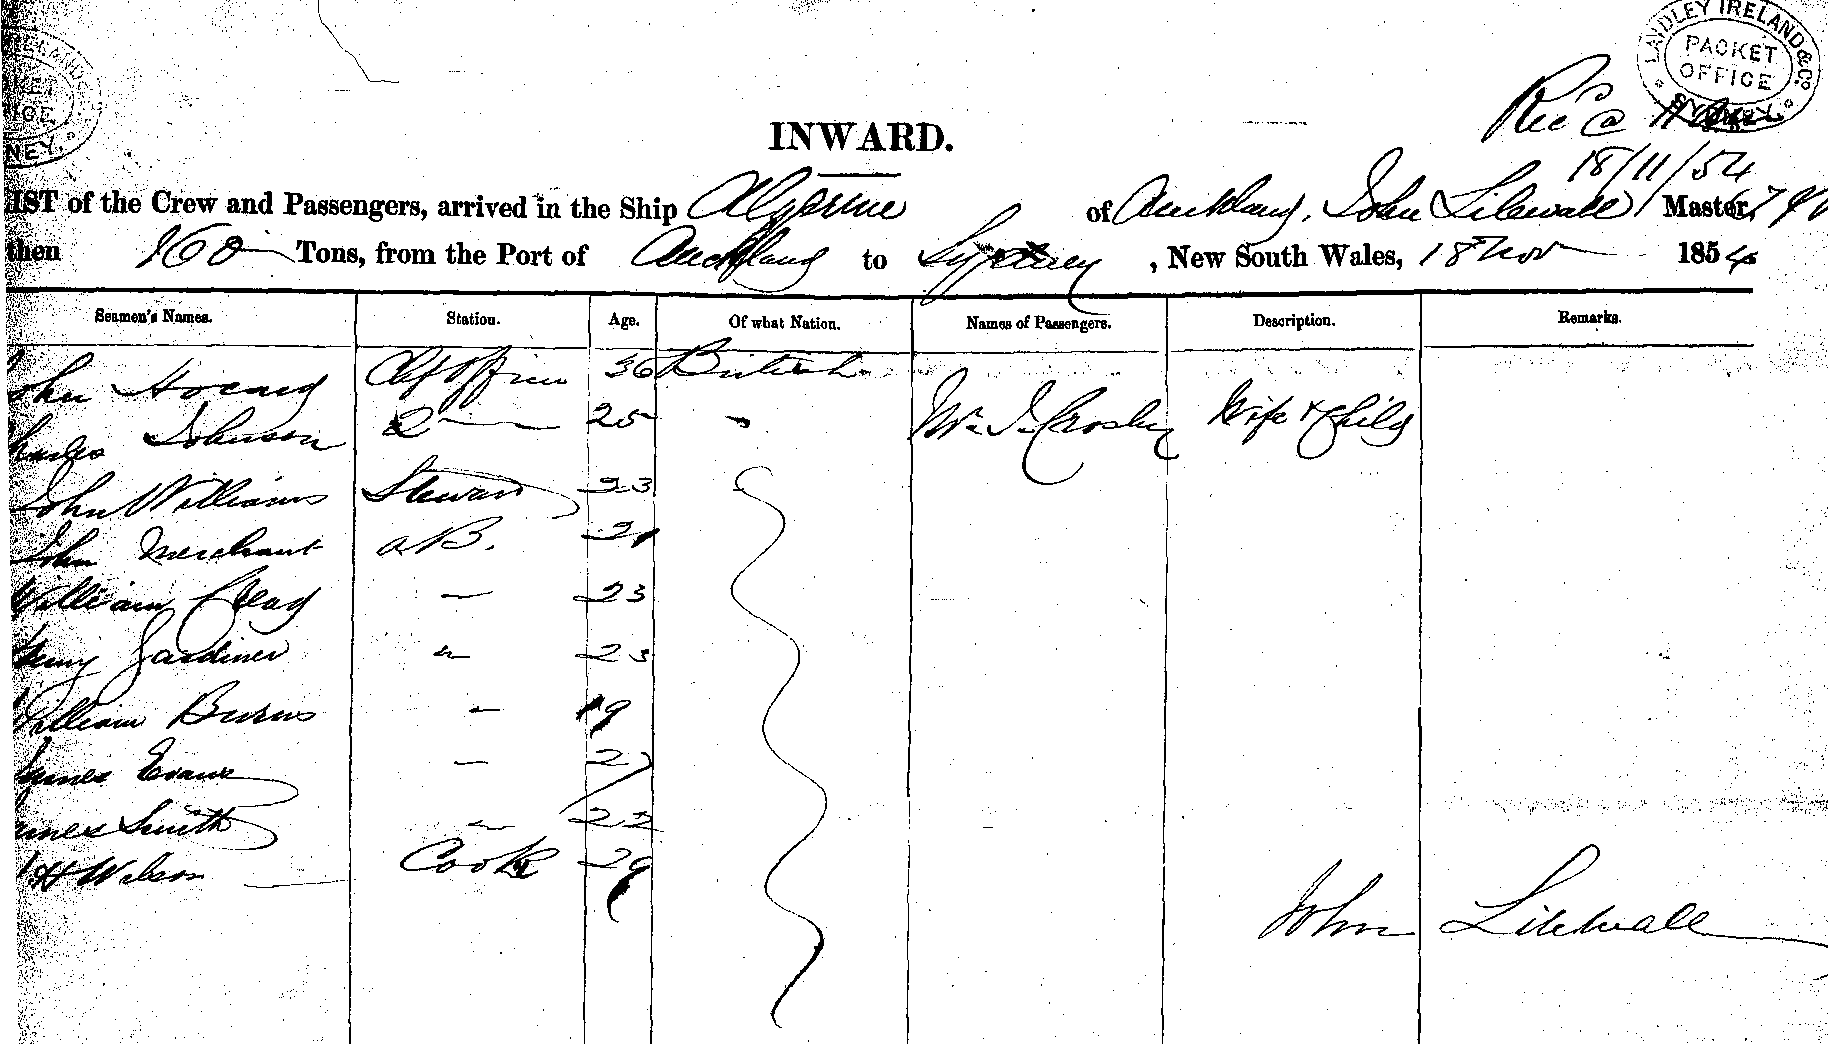 LAIDLEY IRELAND & Co
PACKET
OFFICE
SYDNEY
INWARD.
18/11/54
LIST of the Crew and Passengers, arrived in the Ship Algerine of Auckland, John Litewall Master,
then 160 Tons, from the Port of Auckland to Sydney, New South Wales, 18 Nov 1854
Seamen's Names. Station. Age. Of what Nation. Names of Passengers. Description. Remarks.
John 36 British
Charles Johnson 2 25 " Mr. J. Crosby Wife & Child
John Williams Steward 23
John Merchant AB. 21
William 23
Henry Gardiner " 23
William Burns 19
James Evans 27
James Smith 22
H Wilson Cook 29
John Litewall